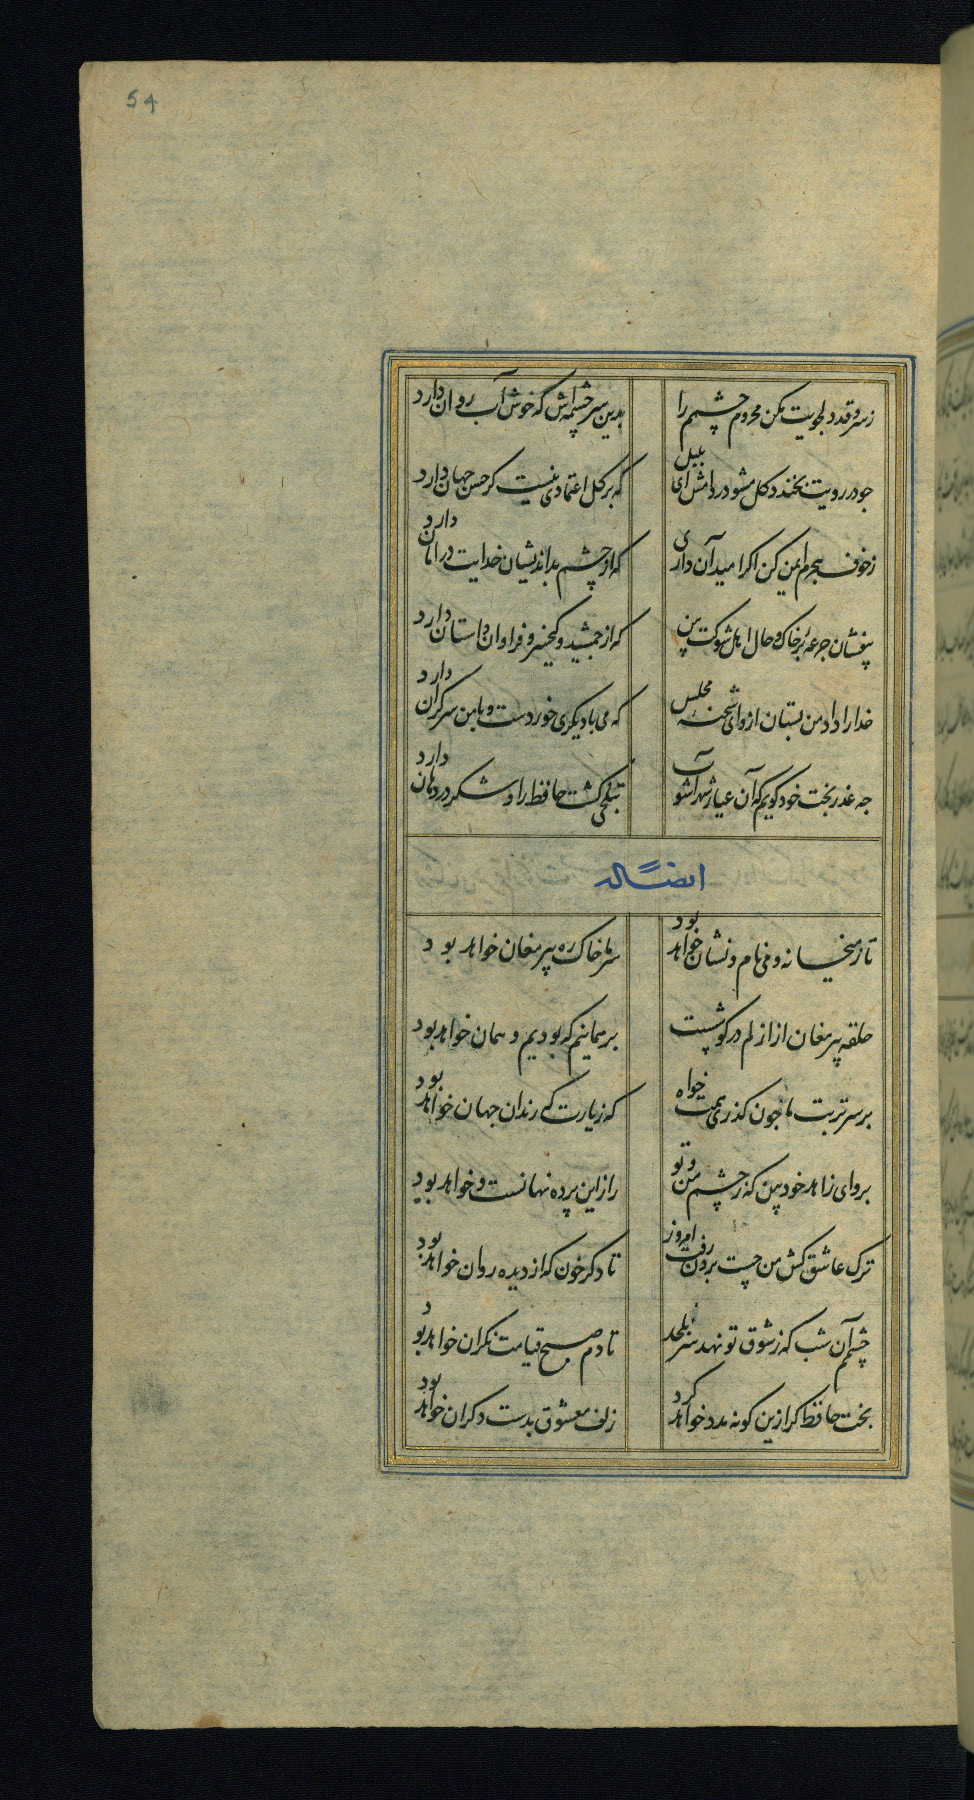 54
ز سرو قد دلجویت مکن محروم چشمم را
بدین سرچشمه‌اش که خوش آب روان دارد
جو در رویت بخندد کل مشو در دامش ای بلبل
که بر کل اعتمادی نیست کر حسن جهان دارد
ز خوف هجرم ایمن کن اکر امید آن داری
که از چشم بداندیشان خدایت در امان دارد
بیفشان جرعهٔ بر خاک و حال اهل شوکت بین
که از جمشید و کیخسرو فراوان داستان دارد
خدا را داد من بستان ازو ای شحنه مجلس
که می با دیکری خوردست و با من سر کران دارد
جه عذر بخت خود کویم که آن عیار شهرآشوب
بتلخی کشت حافظ را و شکر در دهان دارد
ایضاً له
تا ز میخانه و می نام و نشان خواهد بود
سر ما خاک ره پیر مغان خواهد بود
حلقه پیر مغان از ازلم در کوشست
بر همانیم که بودیم و همان خواهد بود
بر سر تربت ما جون کذری همت خواه
که زیارت که رندان جهان خواهد بود
برو ای زاهد خودبین که ز چشم من و تو
راز این پرده نهانست و خواهد بود
ترک عاشق کش من چست برون رفت امروز
تا دکر خون که از دیده روان خواهد بود
چشمم آن شب که ز شوق تو نهد سر بلحد
تا دم صبح قیامت نکران خواهد بود
بخت حافظ کر ازین کونه مدد خواهد کرد
زلف معشوق بدست دکران خواهد بود